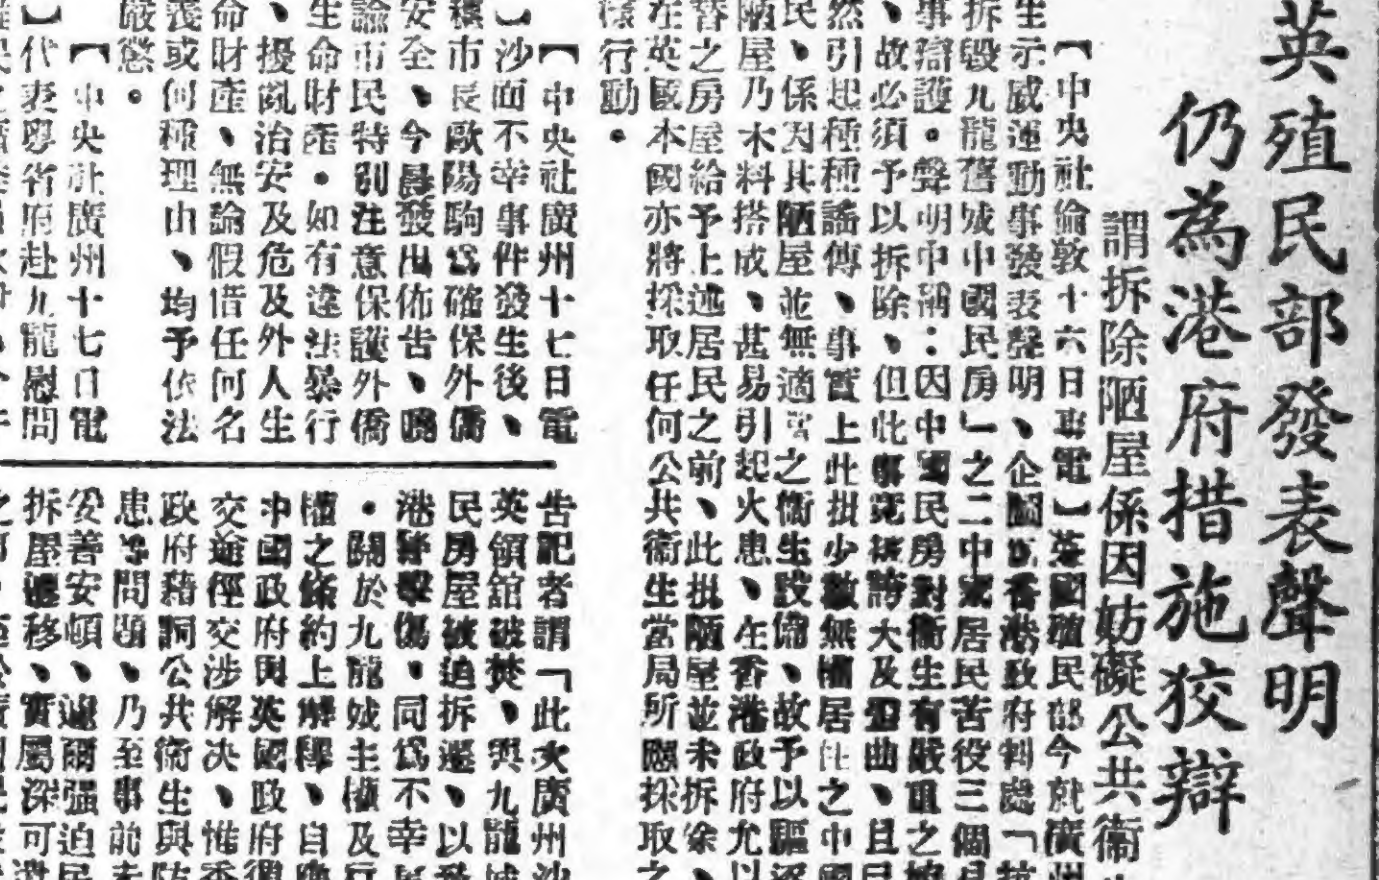 英殖民部發表聲明
仍為港府措施狡辯
謂拆除陋屋係因妨礙公共衞
【中央社倫敦十六日專電】英國殖民部今就廣州
生示威運動事發表聲明、企圖為香港政府判處「抗
拆毀九龍舊城中國民房」之二中家居民苦役三個月
事辯護。聲明中稱：因中國民房對衞生有嚴重之
、故必須予以拆除、但此事竟被誇大及歪曲、且已
然引起種種謠傳、事實上此批少數無權居住之中國
民、係因其陋屋並無適當之衞生設備、故予以驅逐
陋屋乃木料搭成、甚易引起火患、在香港政府允以
替之房屋給予上述居民之前、此批陋屋並未拆除、
在英國本國亦將採取任何公共衞生當局所應採取之
樣行動。
【中央社廣州十七日電
】沙面不幸事件發生後、
穗市長歐陽駒為確保外僑
安全、今晨發出佈告、曉
諭市民特別注意保護外僑
生命財產。如有違法暴行
、擾亂治安及危及外人生
命財產、無論假借任何名
義或何種理由、均予依法
嚴懲。
【中央社廣州十七日電
】代表粵省府赴九龍慰問
告記者謂「此次廣州沙
英領舘被焚、與九龍城
民房屋被迫拆遷、以致
港警擊傷、同為不幸
。關於九龍城主權及行
權之條約上解釋、自應
中國政府與英國政府循
交途徑交涉解决、惟香
政府藉詞公共衞生與防
患等問題、乃至事前未
妥善安頓、遽爾强迫民
拆屋遷移、實屬深可